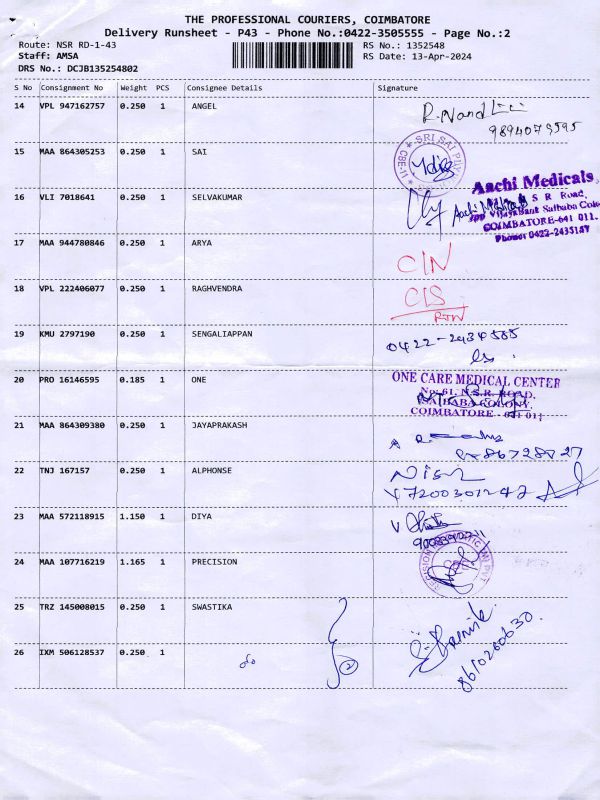 THE PROFESSIONAL COURIERS, COIMBATORE
Delivery Runsheet - P43 - Phone No.:0422-3505555 - Page No.:2
Route: NSR RD-1-43 RS No.: 1352548
Staff: AMSA RS Date: 13-Apr-2024
DRS No.: DCJB135254802
S No Consignment No Weight PCS Consignee Details Signature
14 VPL 947162757 0.250 1 ANGEL
9894079595
15 MAA 864305253 0.250 1 SAI
SRI SAI
16 VLI 7018641 0.250 1 SELVAKUMAR
Aachi Medicals,
S R Road,
COIMBATORE-641 011.
Phone: 0422-2435147
17 MAA 944780846 0.250 1 ARYA
C/N
18 VPL 222406077 0.250 1 RAGHVENDRA
C/S
RTN
19 KMU 2797190 0.250 1 SENGALIAPPAN
0422-2434585
20 PRO 16146595 0.185 1 ONE
ONE CARE MEDICAL CENTER
No: 61, N.S.R. ROAD,
SAIBABA COLONY,
COIMBATORE - 641 011
21 MAA 864309380 0.250 1 JAYAPRAKASH
22 TNJ 167157 0.250 1 ALPHONSE
7200301242
23 MAA 572118915 1.150 1 DIYA
24 MAA 107716219 1.165 1 PRECISION
25 TRZ 145008015 0.250 1 SWASTIKA
26 IXM 506128537 0.250 1
2
8610260630